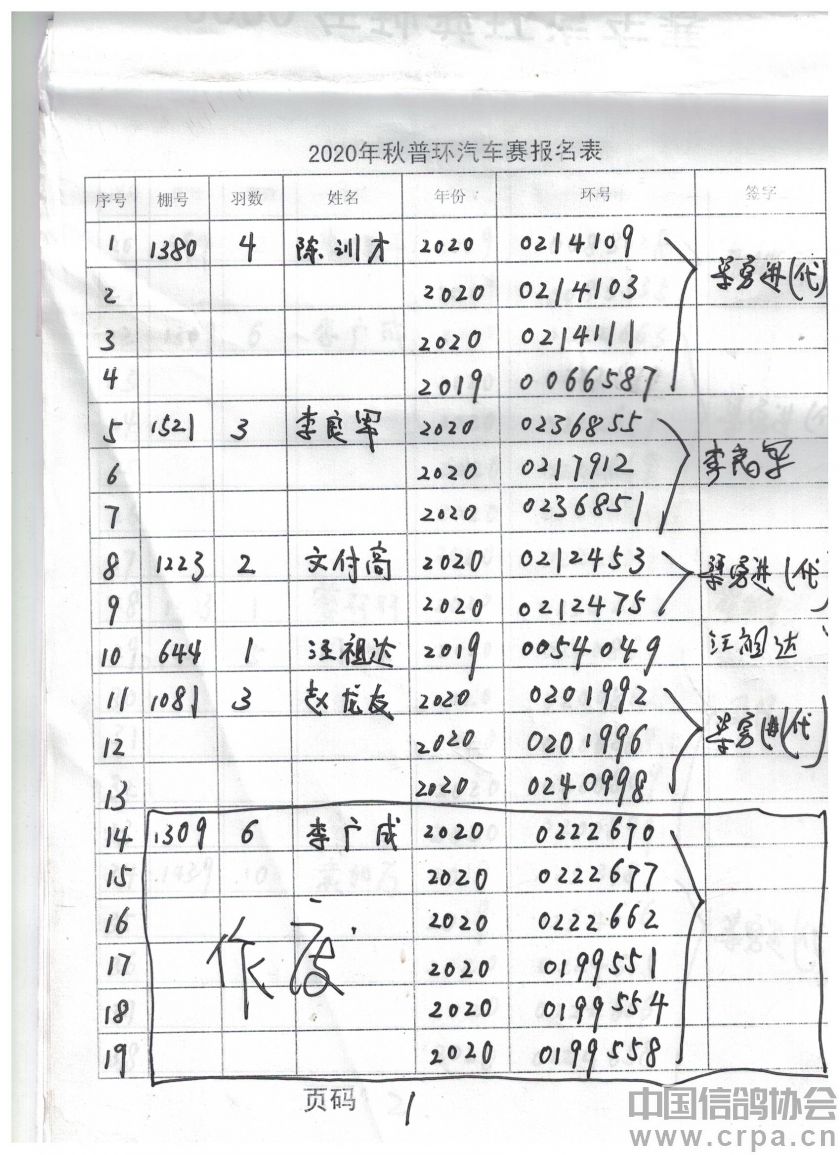 2020年秋普环汽车赛报名表
序号 棚号 羽数 姓名 年份 环号 签字
1 1380 4 陈训才 2020 0214109
2 2020 0214103 (代)
3 2020 0214111
4 2019 0066587
5 1521 3 李良军 2020 0236855
6 2020 0217912 李良军
7 2020 0236851
8 1223 2 文付高 2020 0212453 (代)
9 2020 0212475
10 644 1 汪祖达 2019 0054049 汪祖达
11 1081 3 赵龙友 2020 0201992
12 2020 0201996 (代)
13 2020 0240998
14 1309 6 李广成 2020 0222670
15 2020 0222677
16 2020 0222662
17 作废 2020 0199551
18 2020 0199554
19 2020 0199558
页码 1
中国信鸽协会
www.crpa.cn